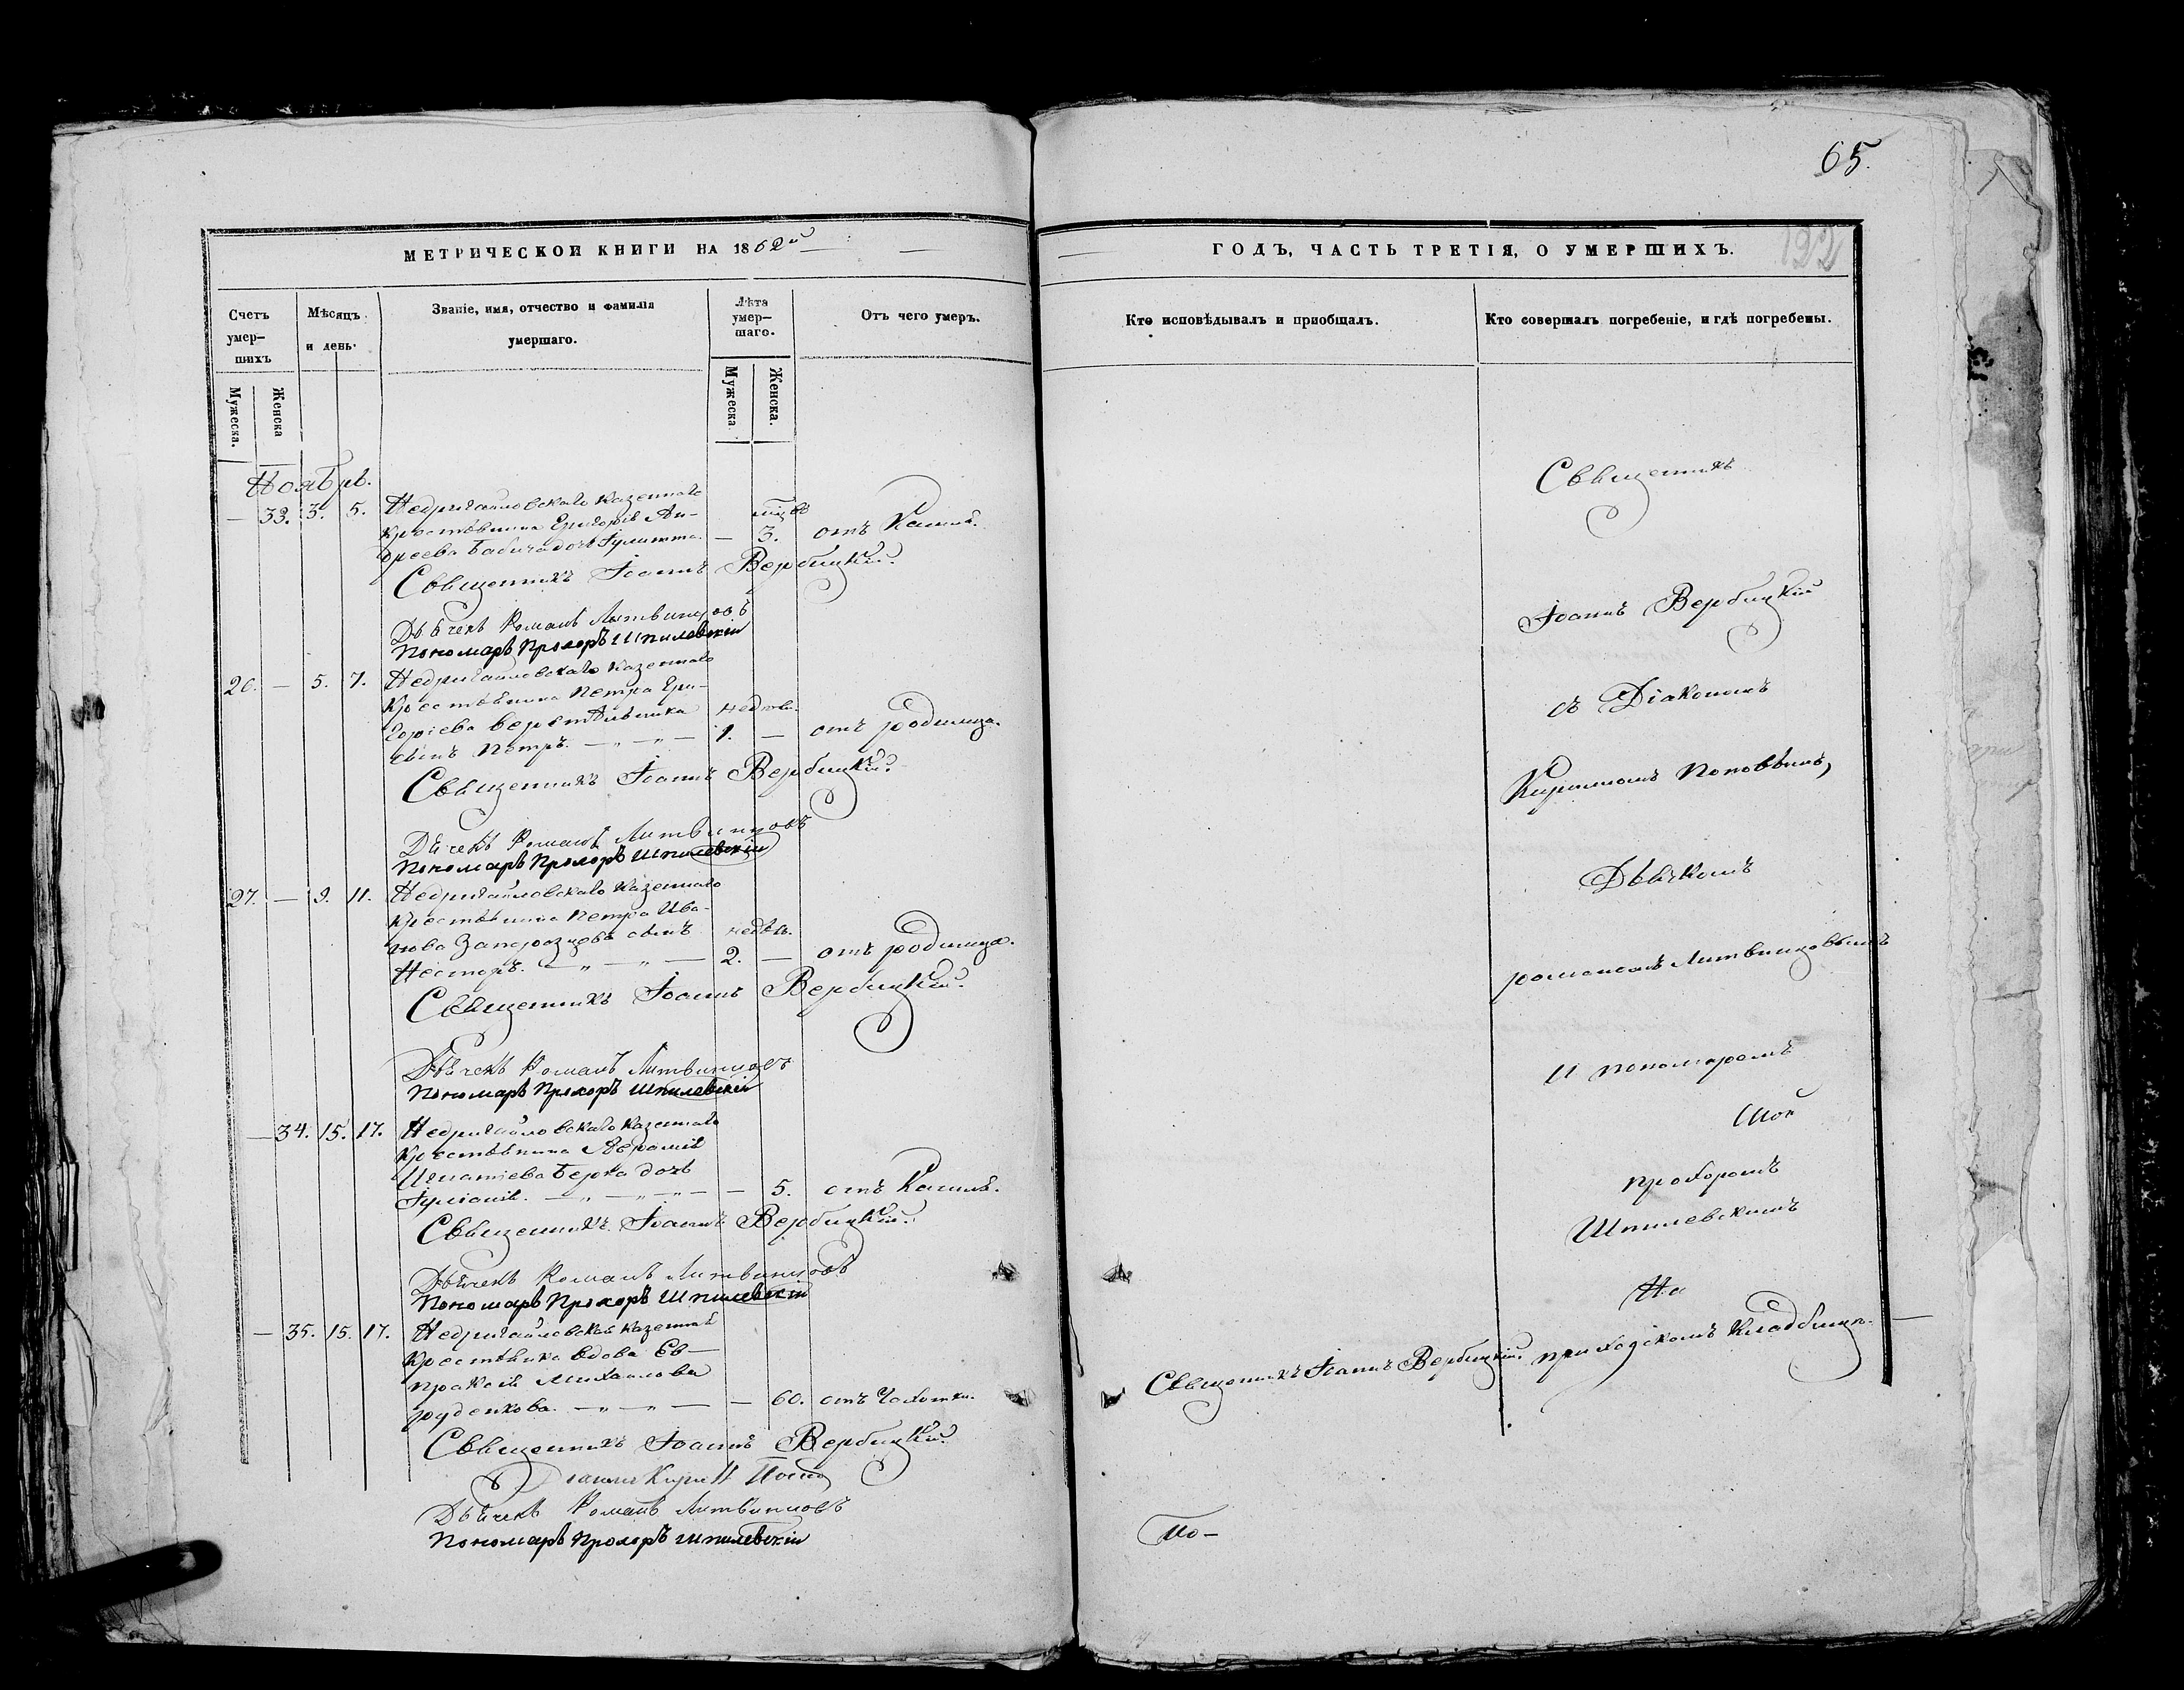 65.
192
МЕТРИЧЕСКОЙ КНИГИ НА 1862й
ГОДЪ, ЧАСТЬ ТРЕТІЯ, О УМЕРШИХЪ.
Счетъ умер-шихъ
Мѣсяцъ и день.
Званіе, имя, отчество и фамилія умершаго.
Лѣта умер-шаго.
Отъ чего умеръ.
Кто исповѣдывалъ и пріобщалъ.
Кто совершалъ погребеніе, и гдѣ погребены.
Мужеска.
Женска
Мужеска
Женска.
Ноябрь.
— 33. 3. 5. Недригайловскаго казеннаго
крестьянина Григорія Ан-
дреева Бабича дочь Іулитта. — 3. отъ Кашля.
Священникъ Іоаннъ Вербицкій.
Дьячекъ Романъ Литвинцовъ
Пономарь Прохоръ Шпилевскій
26. — 5. 7. Недригайловскаго казеннаго
крестьянина Петра Гри-
горіева сынъ Петръ. недѣли. 1. — отъ родимца.
Священникъ Іоаннъ Вербицкій.
Дьячекъ Романъ Литвинцовъ
Пономарь Прохоръ Шпилевскій
27. — 9. 11. Недригайловскаго казеннаго
крестьянина Петра Ива-
нова Запорозцовъ сынъ недѣль.
Несторъ. — „ — „ — 2. — отъ родимца.
Священникъ Іоаннъ Вербицкій.
Дьячекъ Романъ Литвинцовъ
Пономарь Прохоръ Шпилевскій
— 34. 15. 17. Недригайловскаго казеннаго
крестьянина
Игнатіева Берка дочь
Іуліанія. — „ — „ — „ — — 5. отъ Кашля.
Священникъ Іоаннъ Вербицкій.
Дьячекъ Романъ Литвинцовъ
Пономарь Прохоръ Шпилевскій
— 35. 15. 17. Недригайловская казенная
крестьянка вдова Ев-
праксія Михайлова
Руденкова. — „ — „ — — 60. отъ Чахотки.
Священникъ Іоаннъ Вербицкій.
Діаконъ Кирилл Попов
Дьячекъ Романъ Литвинцовъ
Пономарь Прохоръ Шпилевскій
Священникъ Іоаннъ Вербицкій.
Священникъ
Іоаннъ Вербицкій
съ Діакономъ
Кирилломъ Поповымъ,
Дьячкомъ
Романомъ Литвинцовымъ
и пономаремъ
Прохоромъ
Шпилевскимъ
На
приходскомъ Кладбищѣ.
По-